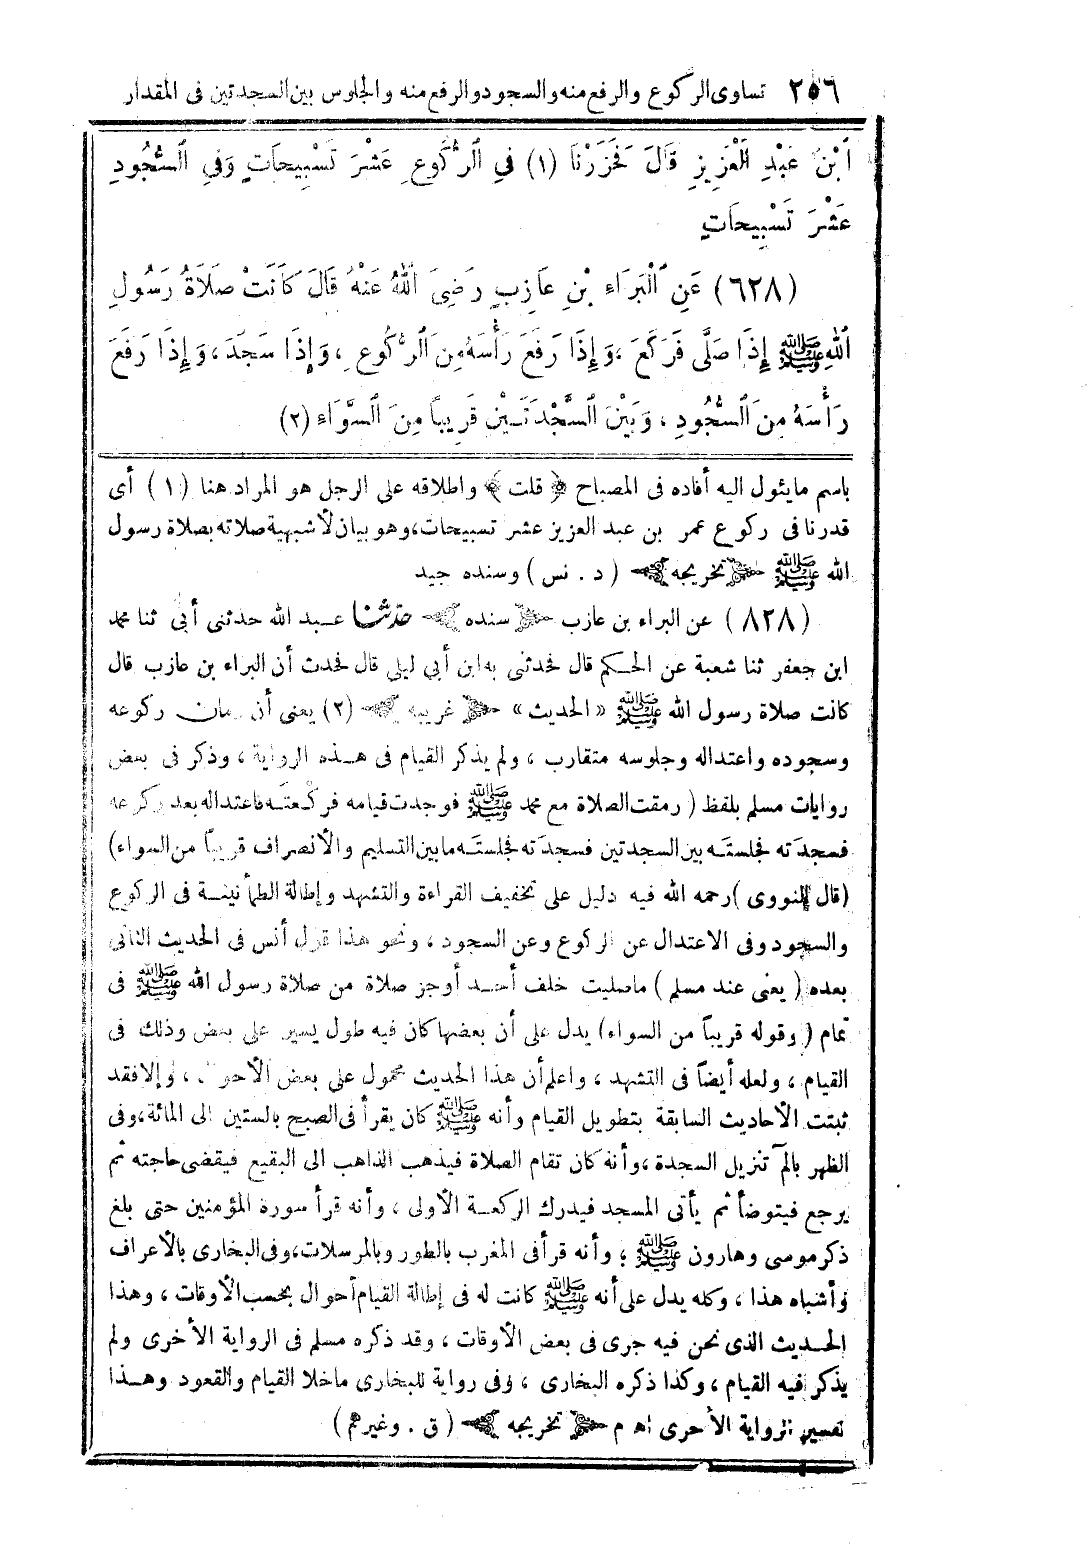 ٢٥٦ تساوى الركوع والرفع منه والسجود والرفع منه والجلوس بين السجدتين فى المقدار
ٱبْنُ عَبْدِ ٱلْعَزِيزِ قَالَ فَحَزَرْنَا (١) فِي ٱلرُّكُوعِ عَشْرَ تَسْبِيحَاتٍ وَفِي ٱلسُّجُودِ
عَشْرَ تَسْبِيحَاتٍ
(٦٢٨) عَنِ ٱلْبَرَاءِ بْنِ عَازِبٍ رَضِيَ ٱللهُ عَنْهُ قَالَ كَانَتْ صَلَاةُ رَسُولِ
ٱللهِ ﷺ إِذَا صَلَّى فَرَكَعَ ، وَإِذَا رَفَعَ رَأْسَهُ مِنَ ٱلرُّكُوعِ ، وَإِذَا سَجَدَ ، وَإِذَا رَفَعَ
رَأْسَهُ مِنَ ٱلسُّجُودِ ، وَبَيْنَ ٱلسَّجْدَتَيْنِ قَرِيباً مِنَ ٱلسَّوَاءِ (٢)
باسم مايئول اليه أفاده فى المصباح ﴿ قلت ﴾ واطلاقه على الرجل هو المراد هنا ( ١ ) أى
قدرنا فى ركوع عمر بن عبد العزيز عشر تسبيحات، وهو بيان لأشبهية صلاته بصلاة رسول
الله ﷺ ﴿ تخريجه ﴾ ( د . نس ) وسنده جيد
( ٨٢٨ ) عن البراء بن عازب ﴿ سنده ﴾ حدّثنا عبد الله حدثنى أبى ثنا محمد
ابن جعفر ثنا شعبة عن الحكم قال فحدثنى به ابن أبى ليلى قال فحدث أن البراء بن عازب قال
كانت صلاة رسول الله ﷺ «الحديث» ﴿ غريبه ﴾ (٢) يعنى أن زمان ركوعه
وسجوده واعتداله وجلوسه متقارب ، ولم يذكر القيام فى هذه الرواية ، وذكر فى بعض
روايات مسلم بلفظ ( رمقت الصلاة مع محمد ﷺ فوجدت قيامه فركعته فاعتداله بعد ركوعه
فسجدته فجلسته بين السجدتين فسجدته فجلسته مابين التسليم والأنصراف قريباً من السواء)
(قال النووى ) رحمه الله فيه دليل على تخفيف القراءة والتشهد وإطالة الطمأنينة فى الركوع
والسجود وفى الاعتدال عن الركوع وعن السجود ، ونحو هذا قول أنس فى الحديث الثانى
بعده ( يعنى عند مسلم ) ماصليت خلف أحد أوجز صلاة من صلاة رسول الله ﷺ فى
تمام ( وقوله قريباً من السواء) يدل على أن بعضها كان فيه طول يسير على بعض وذلك فى
القيام ، ولعله أيضاً فى التشهد ، واعلم أن هذا الحديث محمول على بعض الأحوال ، وإلا فقد
ثبتت الأحاديث السابقة بتطويل القيام وأنه ﷺ كان يقرأ فى الصبح بالستين الى المائة، وفى
الظهر بالم تنزيل السجدة ، وأنه كان تقام الصلاة فيذهب الذاهب الى البقيع فيقضى حاجته ثم
يرجع فيتوضأ ثم يأتى المسجد فيدرك الركعة الأولى ، وأنه قرأ سورة المؤمنين حتى بلغ
ذكر موسى وهارون ﷺ ، وأنه قرأ فى المغرب بالطور وبالمرسلات، وفى البخارى بالأعراف
وأشباه هذا ، وكله يدل على أنه ﷺ كانت له فى إطالة القيام أحوال بحسب الأوقات ، وهذا
الحديث الذى نحن فيه جرى فى بعض الأوقات ، وقد ذكره مسلم فى الرواية الأخرى ولم
يذكر فيه القيام ، وكذا ذكره البخارى ، وفى رواية للبخارى ماخلا القيام والقعود وهذا
تفسير الرواية الأخرى اهـ م ﴿ تخريجه ﴾ ( ق . وغيرهم )